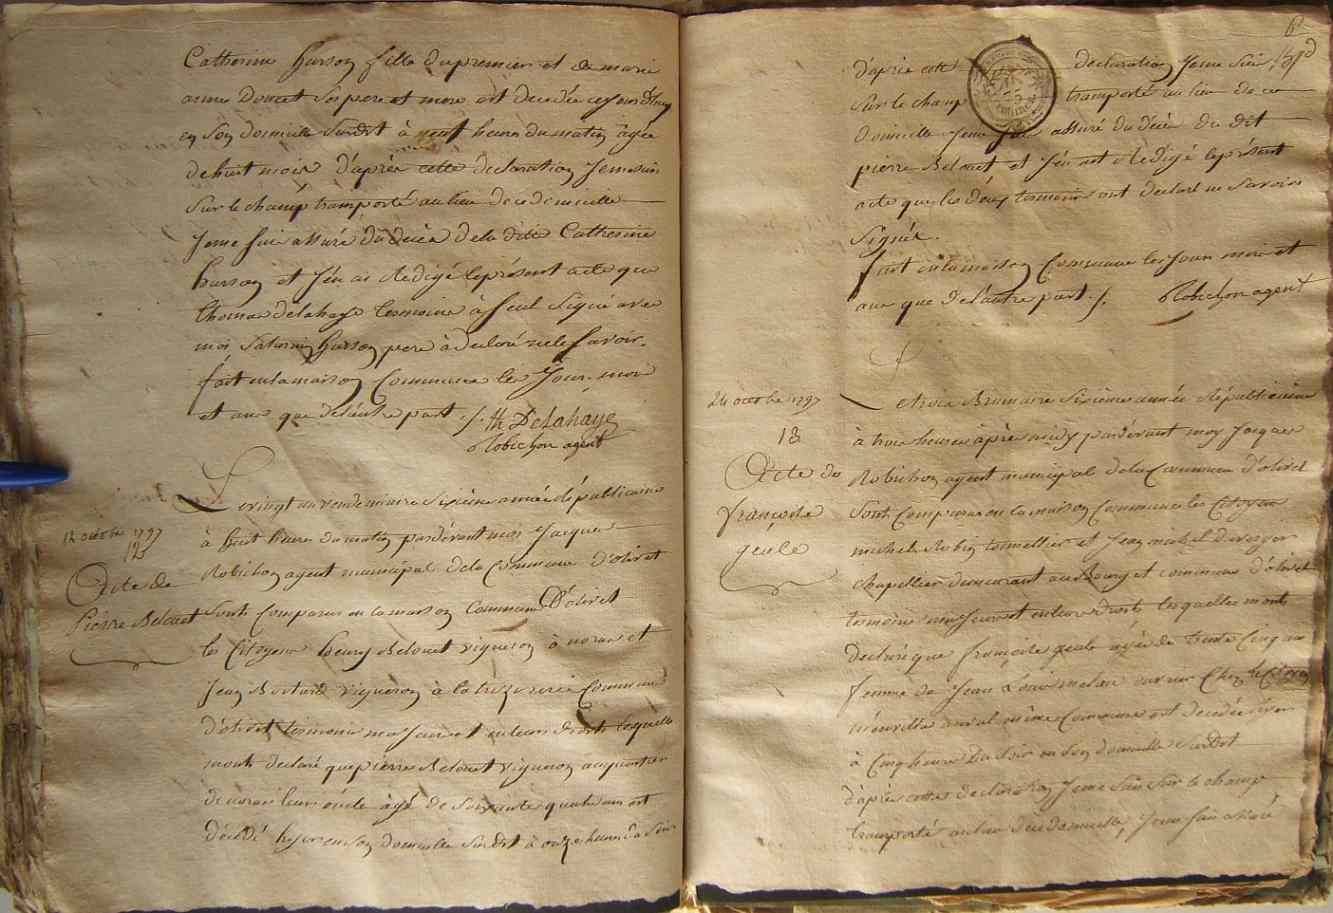 Catherine husson fille du premier et de marie
anne Doucet Ses pere et mere est décédée ce jourdhuy
en Son domicille Susdit à neuf heures du matin âgée
de huit mois d'après cette declaration Je me suis
Sur le champ transporté au lieu de ce domicille
Je me suis assuré du décès de la ditte Catherine
husson et J'en ai rédigé le présent acte que
thomas delahaye temoins à Seul Signé avec
moi husson pere à declaré ne le Savoir.
fait en la maison Commune les Jour mois
et ans que de lautre part ./. th Delahaye
Robichon agent
Le vingt un vendemiaire Sixième année républicaine
à huit heures du matin pardevant moi Jacques
Robichon agent municipal de la Commune d'olivet
12 octobre 1797
Acte de
Pierre Belouet
Sont Comparus en la maison Commune D'olivet
les Citoyens henry Belouet vigneron à noras et
Jean vigneron à la Commune
d'olivet temoins majeurs et en leurs droits lesquels
mont declaré que pierre Belouet vigneron au quartier
de noras leur oncle âgé de Soixante quatre ans est
décédé hyer en Son domicille Susdit à onze heures du Soir
6
d'après cette declaration Je me Suis
Sur le champ transporté au lieu de ce
domicille Je me Suis assuré du décès du dit
pierre Belouet et J'en ait rédigé le présent
acte que les deux temoins ont declaré ne Savoir
Signée.
fait en la maison Commune les Jour mois et
ans que de l'autre part ./. Robichon agent
24 octobre 1797
18
Acte de
françoise
geule
Le trois Brumaire Sixième année Républicaine
à trois heures après midy pardevant moy Jacques
Robichon agent municipal de la Commune d'olivet
Sont Comparus en la maison Commune les Citoyens
michel Robin tonnellier et Jean
chapellier demeurant au Bourg et commune d'olivet
temoins majeurs et en leurs droits lesquelles mont
declaré que françoise geule agée de trente Cinq ans
femme de Jean Louis
même Commune est decedée hier
à Cinq heures Du Soir en Son domicille Susdit
d'après cette declaration Je me Suis Sur le champ
transporté au lieu de ce domicille, Je me Suis assuré